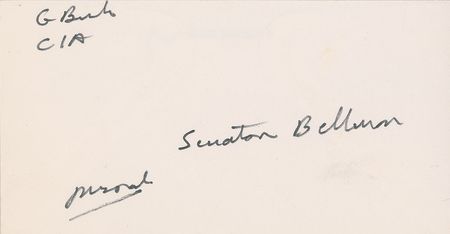 G Bush
CIA
Senator Bellmon
personal